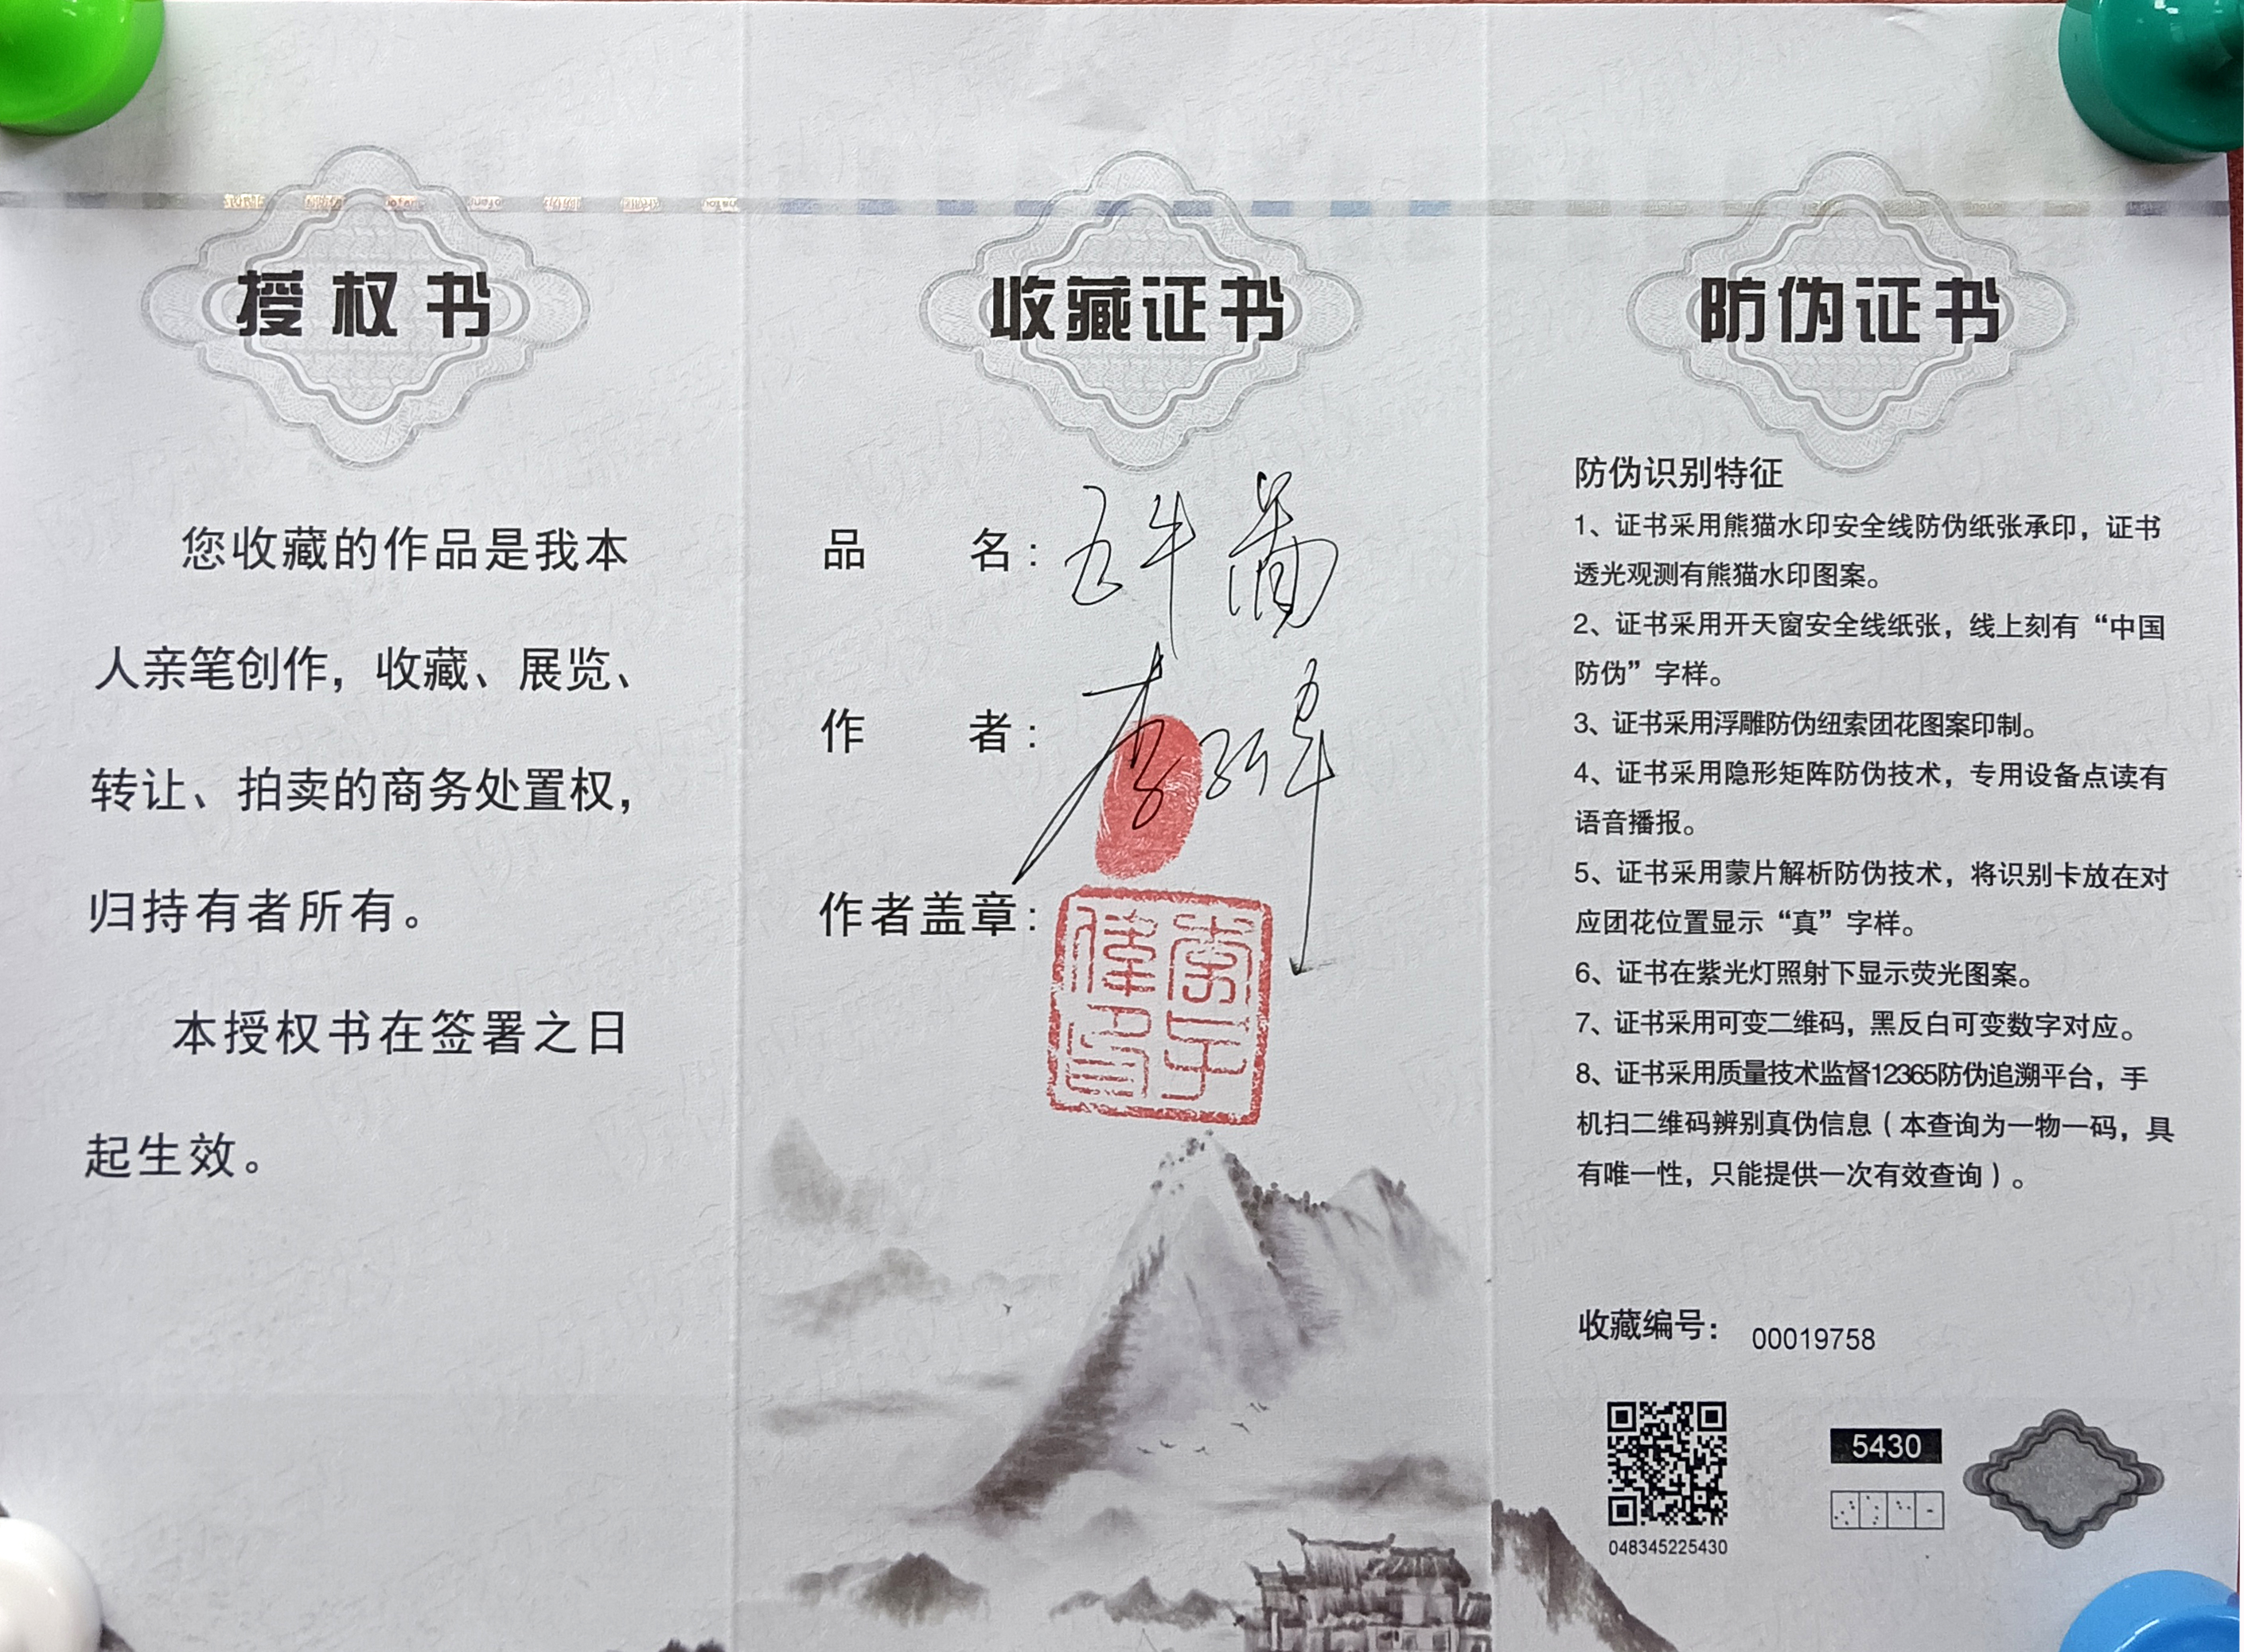 授权书
您收藏的作品是我本
人亲笔创作，收藏、展览、
转让、拍卖的商务处置权，
归持有者所有。
本授权书在签署之日
起生效。
收藏证书
品 名：五牛图
作 者：李
作者盖章：
防伪证书
防伪识别特征
1、证书采用熊猫水印安全线防伪纸张承印，证书
透光观测有熊猫水印图案。
2、证书采用开天窗安全线纸张，线上刻有“中国
防伪”字样。
3、证书采用浮雕防伪纽索团花图案印制。
4、证书采用隐形矩阵防伪技术，专用设备点读有
语音播报。
5、证书采用蒙片解析防伪技术，将识别卡放在对
应团花位置显示“真”字样。
6、证书在紫光灯照射下显示荧光图案。
7、证书采用可变二维码，黑反白可变数字对应。
8、证书采用质量技术监督12365防伪追溯平台，手
机扫二维码辨别真伪信息（本查询为一物一码，具
有唯一性，只能提供一次有效查询）。
收藏编号：00019758
5430
048345225430